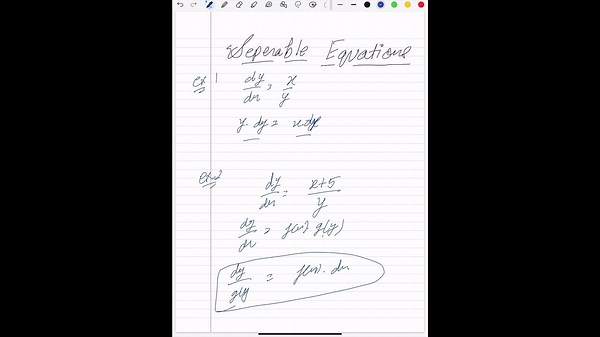 Seperable Equations
ex 1
dy/dx = x/y
y. dy = x.dx
ex 2
dy/dx = x+5/y
dy/dx = f(x) g(y)
dy/g(y) = f(x). dx